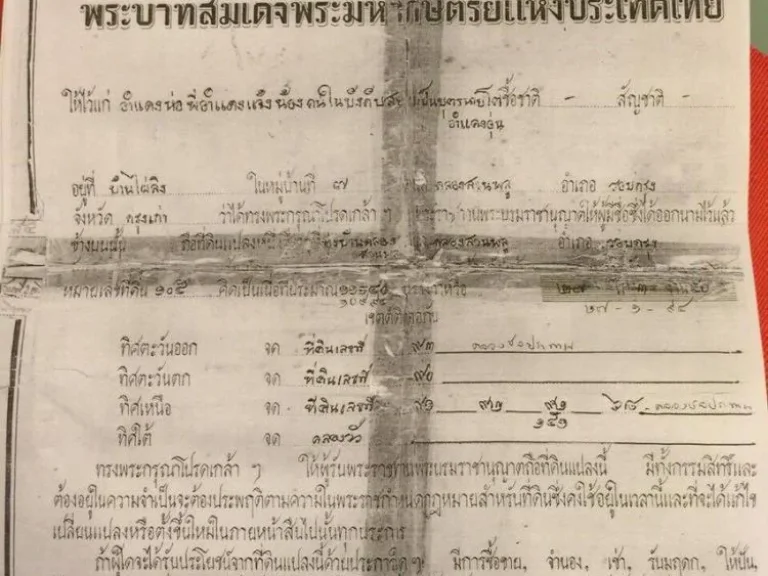 พระบาทสมเด็จพระมหากษัตริย์แห่งประเทศไทย
ให้ไว้แก่ อำแดงห่อ พี่อำแดงแจ้งน้อง คนในบังคับสยาม เป็นบุตรนายโต ชื้อชาติ - สัญชาติ -
อำแดงอุ่น
อยู่ที่ บ้านไผ่ลิง ในหมู่บ้านที่ ๘๗ คลองสวนพลู อำเภอ รอบกรุง
จังหวัด กรุงเก่า ว่าได้ทรงพระกรุณาโปรดเกล้า ฯ พระราชทานพระบรมราชานุญาตให้ผู้มีชื่อซึ่งได้ออกนามไว้แล้ว
ข้างบนนั้น ถือที่ดินแปลงหนึ่ง คลองสวนพลู อำเภอ รอบกรุง
หมายเลขที่ดิน ๑๐๕ คิดเป็นเนื้อที่ประมาณ
เขตต์ติดต่อกับ ๒๗-๑-๙๔
ทิศตะวันออก จด ที่ดินเลขที่ ๙๓ คลองชลประทาน
ทิศตะวันตก จด ที่ดินเลขที่ ๙๐
ทิศเหนือ จด ที่ดินเลขที่ ๙๑ ๙๒ คลองชลประทาน
๑๕๑
ทิศใต้ จด คลองวัว
ทรงพระกรุณาโปรดเกล้า ฯ ให้ผู้รับพระราชทานพระบรมราชานุญาตถือที่ดินแปลงนี้ มีทั้งกรรมสิทธิ์และ
ต้องอยู่ในความจำเป็นจะต้องประพฤติตามความในพระราชกำหนดกฎหมายสำหรับที่ดินซึ่งคงใช้อยู่ในเวลานี้และที่จะได้แก้ไข
เปลี่ยนแปลงหรือตั้งขึ้นใหม่ในภายหน้าสืบไปนั้นทุกประการ
ถ้าผู้ใดจะได้รับประโยชน์จากที่ดินแปลงนี้ด้วยประการใดๆ มีการซื้อขาย, จำนอง, เช่า, รับมฤดก, ให้ปัน,